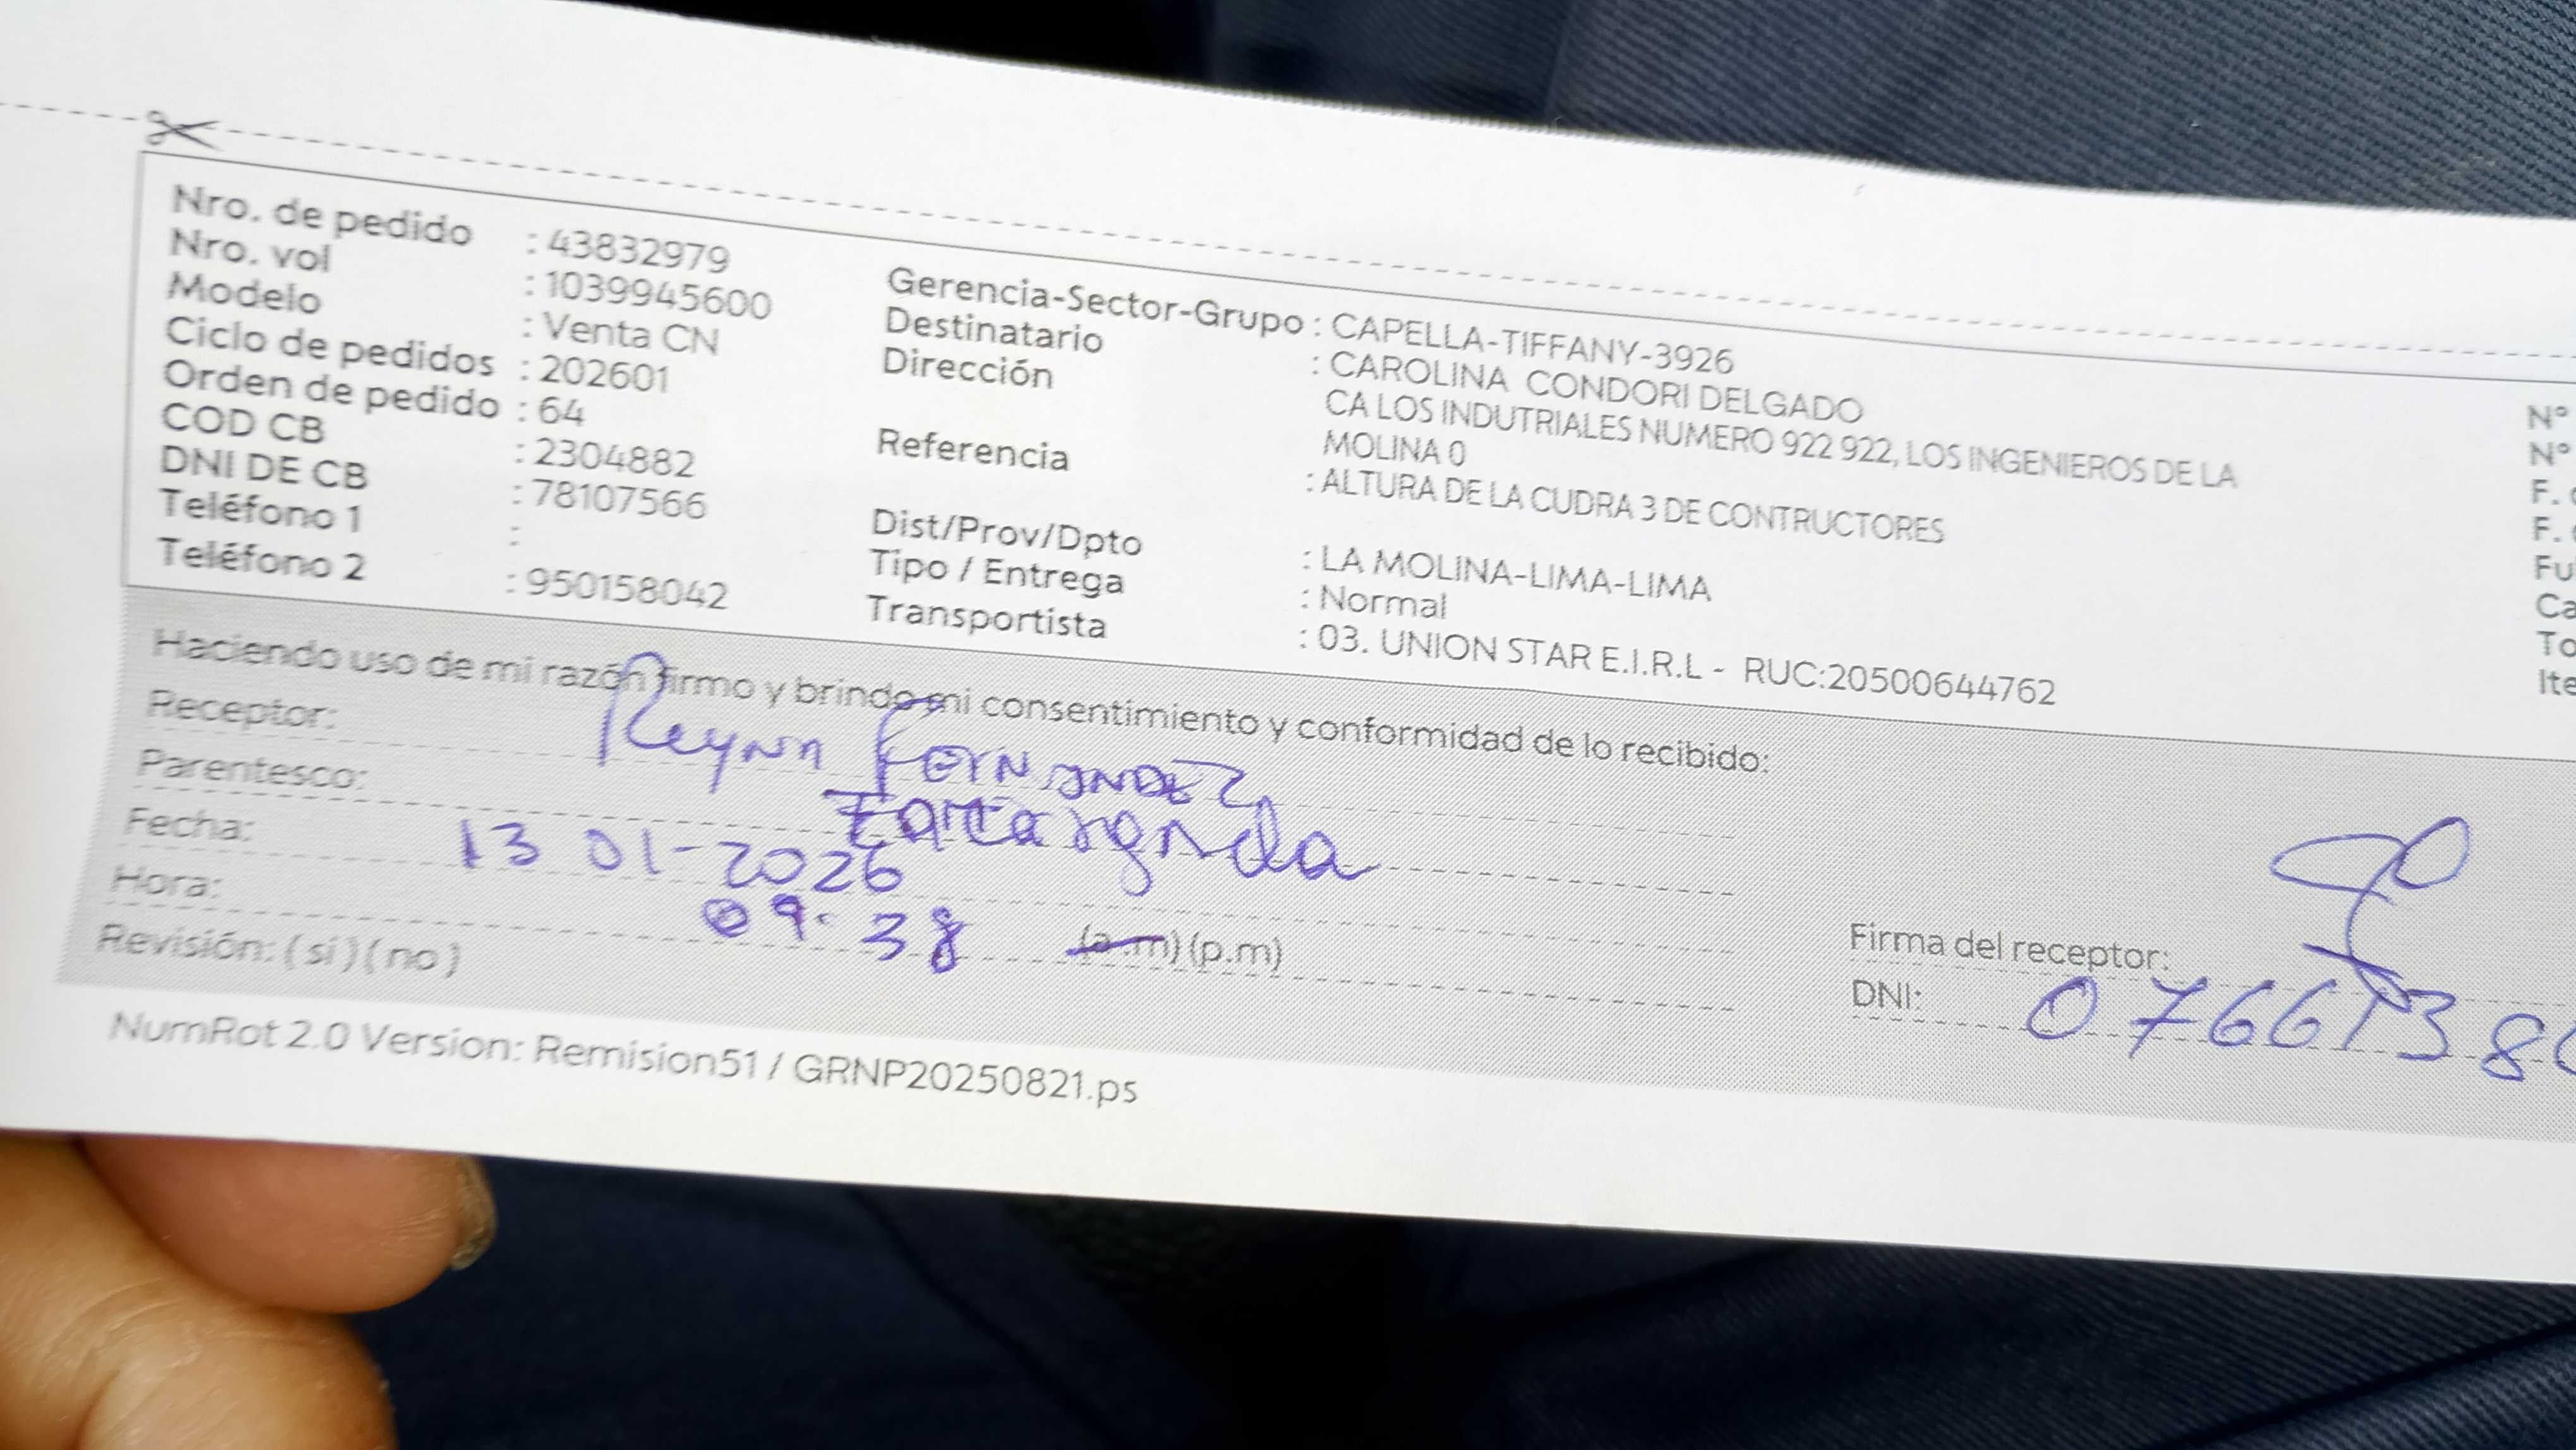 Nro. de pedido : 43832979
Nro. vol : 1039945600
Modelo : Venta CN
Ciclo de pedidos : 202601
Orden de pedido : 64
COD CB : 2304882
DNI DE CB : 78107566
Teléfono 1 :
Teléfono 2 : 950158042
Gerencia-Sector-Grupo : CAPELLA-TIFFANY-3926
Destinatario : CAROLINA CONDORI DELGADO
Dirección CA LOS INDUTRIALES NUMERO 922 922, LOS INGENIEROS DE LA
MOLINA 0
Referencia : ALTURA DE LA CUDRA 3 DE CONTRUCTORES
Dist/Prov/Dpto : LA MOLINA-LIMA-LIMA
Tipo / Entrega : Normal
Transportista : 03. UNION STAR E.I.R.L - RUC:20500644762
N°
N°
F.
F.
Fu
Ca
To
Ite
Haciendo uso de mi razón firmo y brindo mi consentimiento y conformidad de lo recibido:
Receptor: Reyna Fernandez
Parentesco: Encargada
Fecha: 13 01-2026
Hora: 09:38 (a.m) (p.m)
Revisión: ( si ) ( no )
Firma del receptor:
DNI:
NumRot 2.0 Version: Remision51 / GRNP20250821.ps